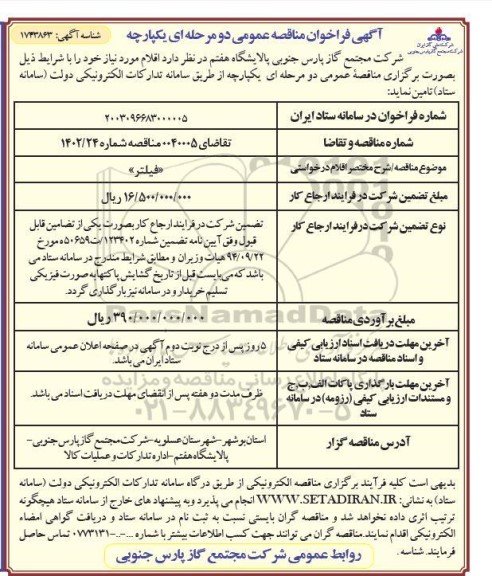 آگهی فراخوان مناقصه عمومی دو مرحله ای یکپارچه
شناسه آگهی: ۱۷۴۳۸۶۳
شرکت مجتمع گاز پارس جنوبی پالایشگاه هفتم در نظر دارد اقلام مورد نیاز خود را با شرایط ذیل
بصورت برگزاری مناقصۀ عمومی دو مرحله ای یکپارچه از طریق سامانه تدارکات الکترونیکی دولت (سامانه
ستاد) تامین نماید:
شماره فراخوان در سامانه ستاد ایران
۲۰۰۳۰۹۶۶۸۳۰۰۰۰۰۵
شماره مناقصه و تقاضا
تقاضای ۰۰۴۰۰۰۵ مناقصه شماره ۱۴۰۲/۲۴
موضوع مناقصه/شرح مختصر اقلام درخواستی
«فیلتر»
مبلغ تضمین شرکت در فرایند ارجاع کار
۱۶/۵۰۰/۰۰۰/۰۰۰ ریال
نوع تضمین شرکت در فرایند ارجاع کار
تضمین شرکت در فرایند ارجاع کار بصورت یکی از تضامین قابل
قبول وفق آیین نامه تضمین شماره ۱۲۳۴۰۲/ت۵۰۶۵۹ه مورخ
۹۴/۰۹/۲۲ هیات وزیران و مطابق شرایط مندرج در سامانه ستاد می
باشد که می بایست قبل از تاریخ گشایش پاکتها به صورت فیزیکی
تسلیم خریدار و در سامانه نیز بارگذاری گردد.
مبلغ برآوردی مناقصه
۳۹۰/۰۰۰/۰۰۰/۰۰۰ ریال
آخرین مهلت دریافت اسناد ارزیابی کیفی
و اسناد مناقصه در سامانه ستاد
۵ روز پس از درج نوبت دوم آگهی در صفحه اعلان عمومی سامانه
ستاد ایران می باشد.
آخرین مهلت بارگذاری پاکات الف,ب,ج
و مستندات ارزیابی کیفی (رزومه) در سامانه
ستاد
ظرف مدت دو هفته پس از انقضای مهلت دریافت اسناد می باشد.
آدرس مناقصه گزار
استان بوشهر-شهرستان عسلویه-شرکت مجتمع گاز پارس جنوبی-
پالایشگاه هفتم-اداره تدارکات و عملیات کالا
ParsNamadData
۰۲۱-۸۸۳۴۹۶۷۰-۵
بدیهی است کلیه فرآیند برگزاری مناقصه الکترونیکی از طریق درگاه سامانه تدارکات الکترونیکی دولت (سامانه
ستاد) به نشانی: WWW.SETADIRAN.IR انجام می پذیرد و به پیشنهاد های خارج از سامانه ستاد هیچگونه
ترتیب اثری داده نخواهد شد و مناقصه گران بایستی نسبت به ثبت نام در سامانه ستاد و دریافت گواهی امضاء
الکترونیکی اقدام نمایند.مناقصه گران می توانند جهت کسب اطلاعات بیشتر با شماره ...-..-۰۷۷۳۱۳۱ تماس حاصل
فرمایند.شناسه.
روابط عمومی شرکت مجتمع گاز پارس جنوبی